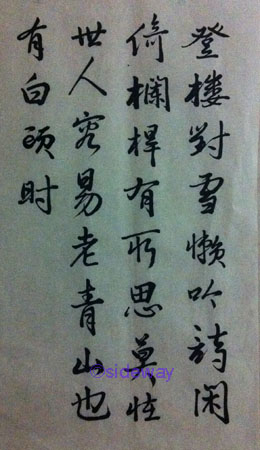 登楼對雪懶吟詩闲
倚欄桿有所思莫怪
世人容易老青山也
有白頭时
©sideway